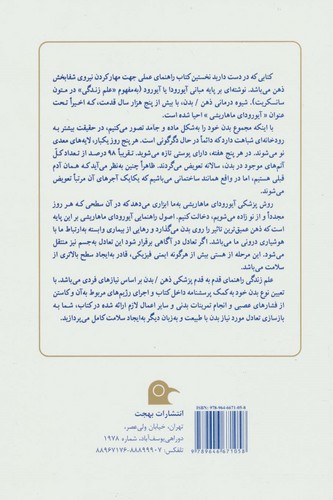 کتابی که در دست دارید نخستین کتاب راهنمای عملی جهت مهار کردن نیروی شفابخش
ذهن می‌باشد. نوشته‌ای بر پایه مبانی آیورودا یا آیورود (به‌مفهوم «علم زندگی» در متون
سانسکریت). شیوه درمانی ذهن / بدن، با بیش از پنج هزار سال قدمت، که اخیراً تحت
عنوان « آیورودای ماهاریشی » احیا شده است.
با اینکه مجموع بدن خود را به‌شکل ماده و جامد تصور می‌کنیم، در حقیقت بیشتر به
رودخانه‌ای شباهت دارد که دائماً در حال دگرگونی است. هر پنج روز یکبار، لایه‌های معدی
نو می‌شوند. در هر پنج هفته، دارای پوستی تازه می‌شوید. تقریباً ۹۸ درصد از تعداد کل
اتم‌های موجود در بدن، سالانه تعویض می‌گردند. ظاهراً چنین به‌نظر می‌آید که همان آدم
قبلی هستیم، اما در واقع همانند ساختمانی می‌باشیم که یکایک آجرهای آن مرتباً تعویض
می‌شوند.
روش پزشکی آیورودای ماهاریشی به‌ما ابزاری می‌دهد که در آن سطحی که هر روز
مجدداً و از نو زاده می‌شویم، دخالت کنیم. اصول راهنمایی آیورودای ماهاریشی بر این پایه
است که ذهن عمیق‌ترین تاثیر را روی بدن می‌گذارد و رهایی از بیماری وابسته به‌ارتباط ما با
هوشیاری درونی ما است. اگر تعادل در آگاهی برقرار شود این تعادل به‌جسم نیز منتقل
می‌شود. این مرحله از هستی بیش از هرگونه ایمنی فیزیکی، قادر به‌ایجاد سطح بالاتری از
سلامت می‌باشد.
علم زندگی راهنمای قدم به قدم پزشکی ذهن / بدن بر اساس نیازهای فردی می‌باشد. با
تعیین نوع بدن خود به‌کمک پرسشنامه داخل کتاب و اجرای رژیم‌های مربوط به‌آن و کاستن
از فشارهای عصبی و انجام تمرینات بدنی و سایر اعمال لازم ارائه شده در کتاب، شما به
بازسازی تعادل مورد نیاز بدن با طبیعت و به‌زبان دیگر به‌ایجاد سلامت کامل می‌پردازید.
انتشارات بهجت
تهران، خیابان ولی‌عصر،
دوراهی‌یوسف‌آباد، شماره ۱۹۷۸
تلفکس: ۸۸۸۹۹۹۰۷-۸۸۹۶۷۱۷۶
ISBN: 978-964-6671-05-8
9 789646 671058